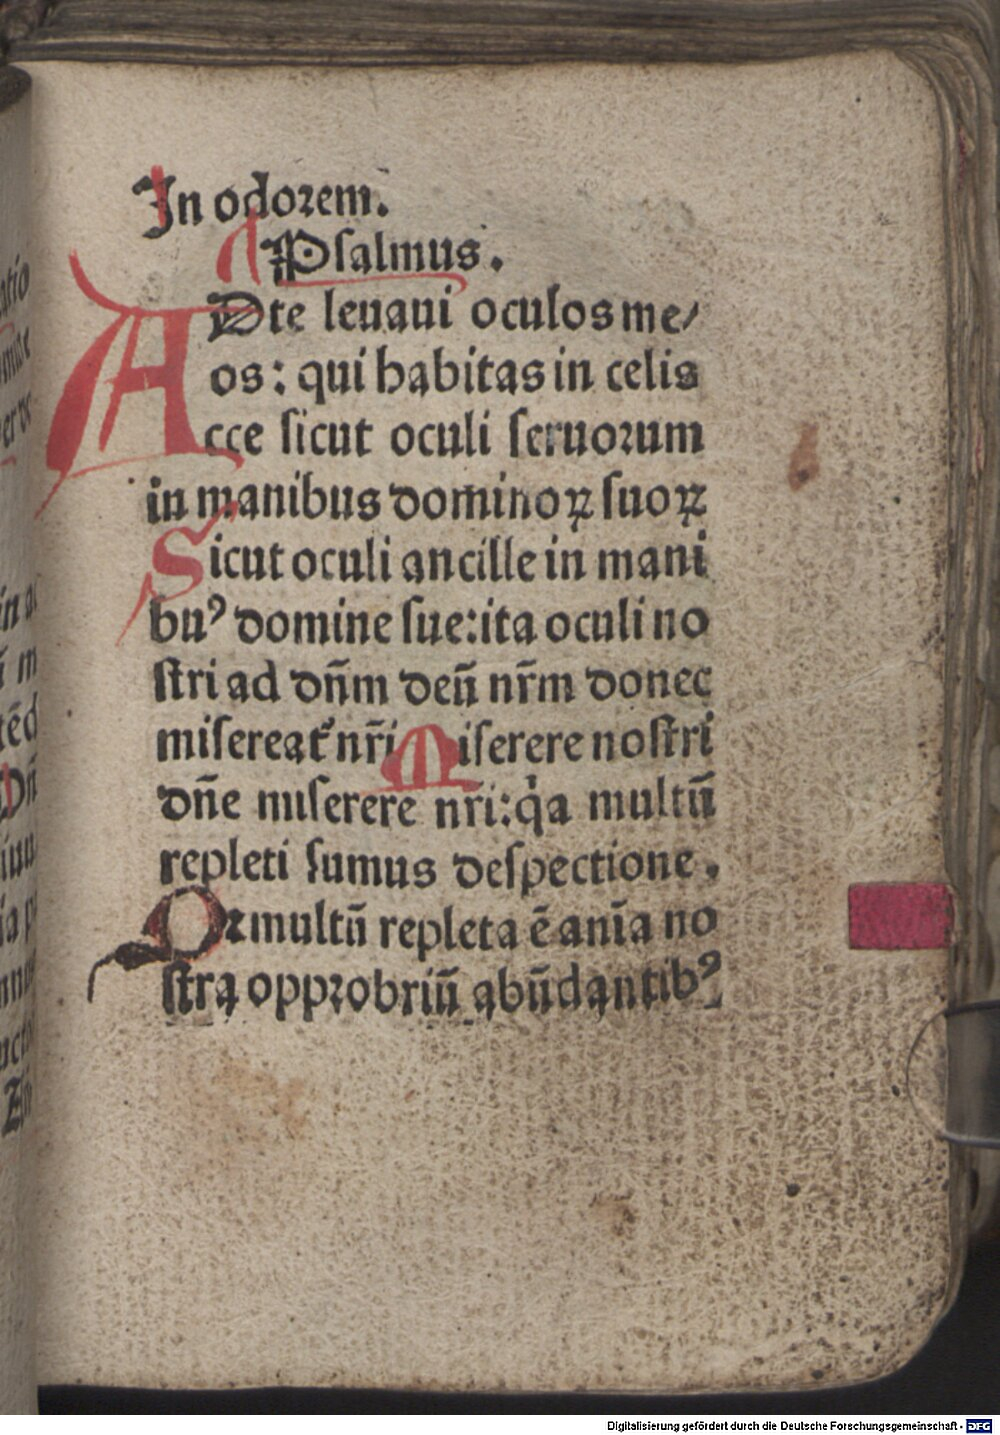 In odorem.
Psalmus.
ADte leuaui oculos me/
os: qui habitas in celis
cce sicut oculi seruorum
in manibus dominoꝝ suoꝝ
Sicut oculi ancille in mani
buꝰ domine sue: ita oculi no
stri ad dn̄m deū nr̄m donec
misereat᷑ nr̄i Miserere nostri
dn̄e miserere nr̄i: qͥa multū
repleti sumus despectione.
Qꝛ multū repleta ē anīa no
stra opprobriū abūdantibꝰ
Digitalisierung gefördert durch die Deutsche Forschungsgemeinschaft - DFG